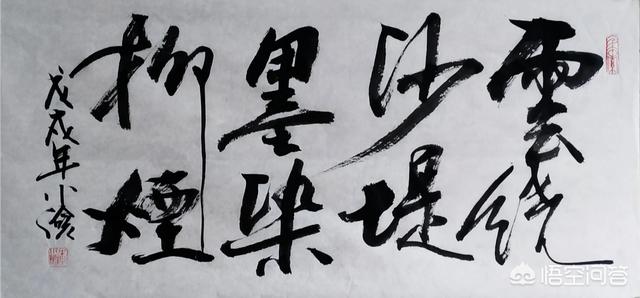 雲繞
沙堤
墨染
柳煙
戊戌年小
悟空问答